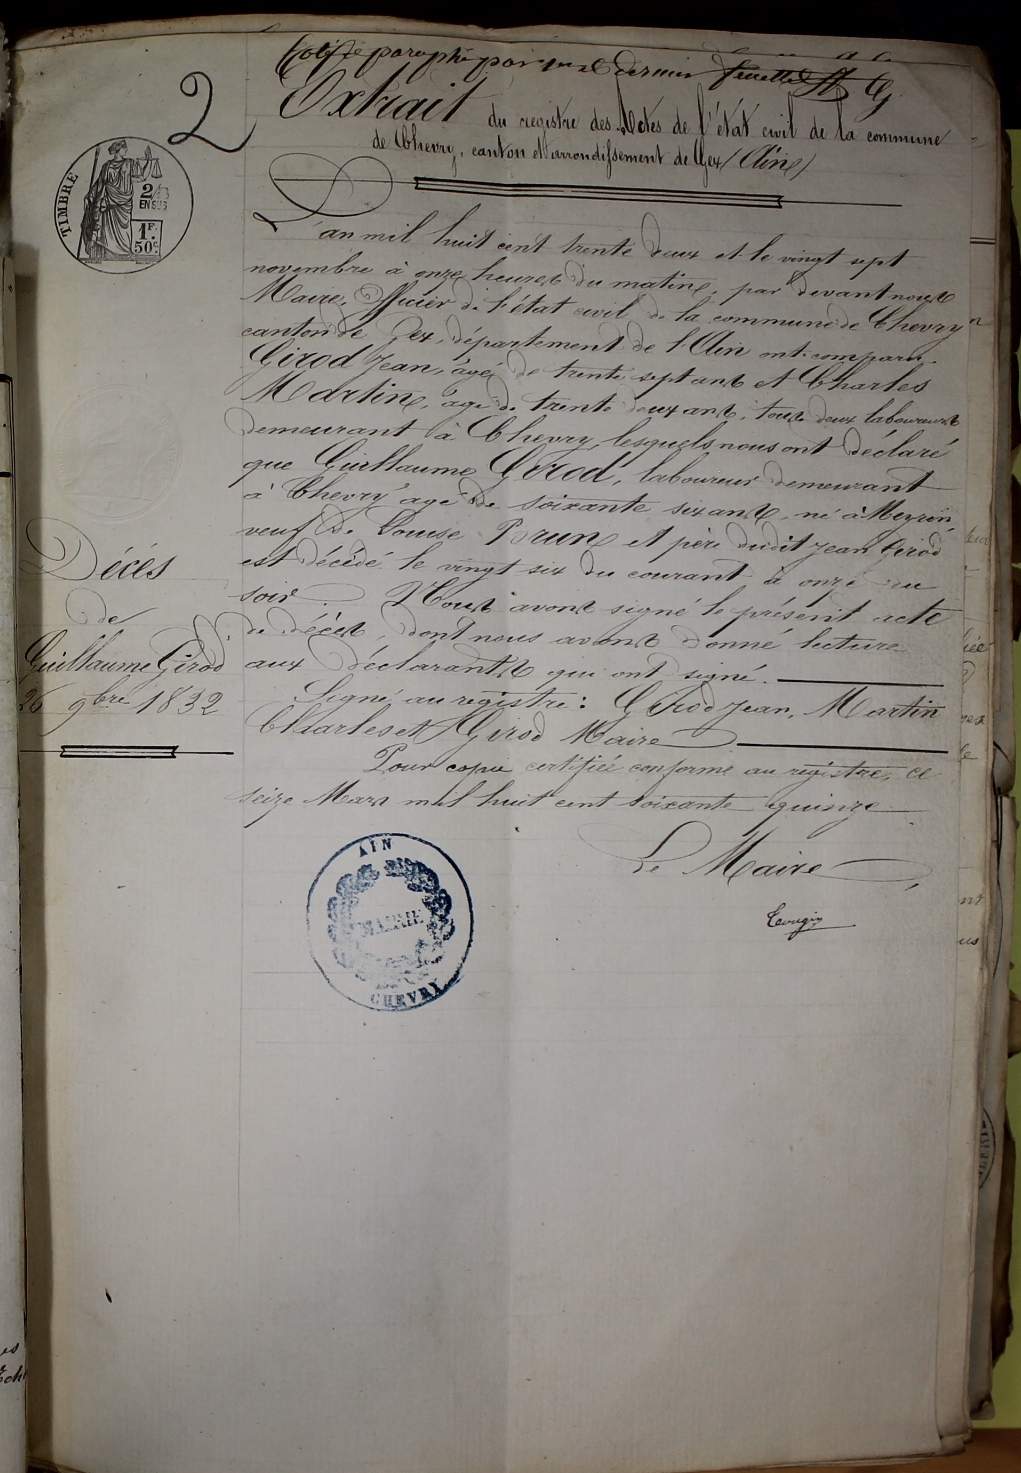 2
Coté et paraphé par dernier feuillet
Extrait du registre des Actes de l'état civil de la commune
de Chevry, canton et arrondissement de Gex (Ain)
TIMBRE
2/10
EN SUS
1F.
50c.
L'an mil huit cent trente deux et le vingt sept
novembre à onze heures du matin, par devant nous
Maire, Officier de l'état civil de la commune de Chevry
canton de Gex, département de l'Ain ont comparu
Girod Jean, âgé de trente sept ans et Charles
Martin, âgé de trente deux ans, tous deux laboureurs
demeurant à Chevry, lesquels nous ont déclaré
que Guillaume Girod, laboureur demeurant
à Chevry âgé de soixante six ans, né à Meyrin,
veuf de Louise Brun et père dudit Jean Girod
est décédé le vingt six du courant à onze du
soir. Nous avons signé le présent acte
de décès, dont nous avons donné lecture
aux déclarants qui ont signé.
Signé au registre: Girod Jean, Martin
Charles et Girod Maire
Pour copie certifiée conforme au registre, ce
seize Mars mil huit cent soixante quinze
Le Maire
Décès
de
Guillaume Girod
26 9bre 1832
AIN
MAIRIE
CHEVRY